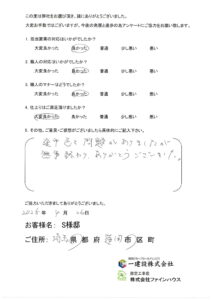 この度は弊社をお選び頂き、誠にありがとうございました。
大変お手数ではございますが、今後の発展と進歩の為アンケートにご協力をお願い致します。
1. 担当営業の対応はいかがでしたか?
大変良かった 良かった 普通 少し悪い 悪い
2. 職人の対応はいかがでしたか?
大変良かった 良かった 普通 少し悪い 悪い
3. 職人のマナーはどうですか?
大変良かった 良かった 普通 少し悪い 悪い
4. 仕上りはご満足頂けましたか?
大変良かった 良かった 普通 少し悪い 悪い
5. その他、ご意見・ご感想がございましたら具体的にご記入下さい。
問題がありましたが
無事終わり ありがとうございました。
ご協力いただきまして、ありがとうございました。
年 月 日
お客様名: S様邸
ご住所: 埼玉 県 都 府 市 区 町
一建設株式会社
株式会社ファインハウス